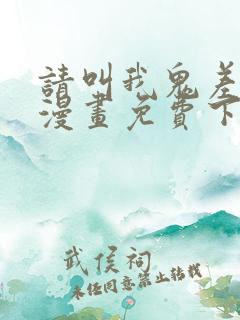 請叫我鬼差
漫畫免費下
武侯祠
未经同意禁止转载